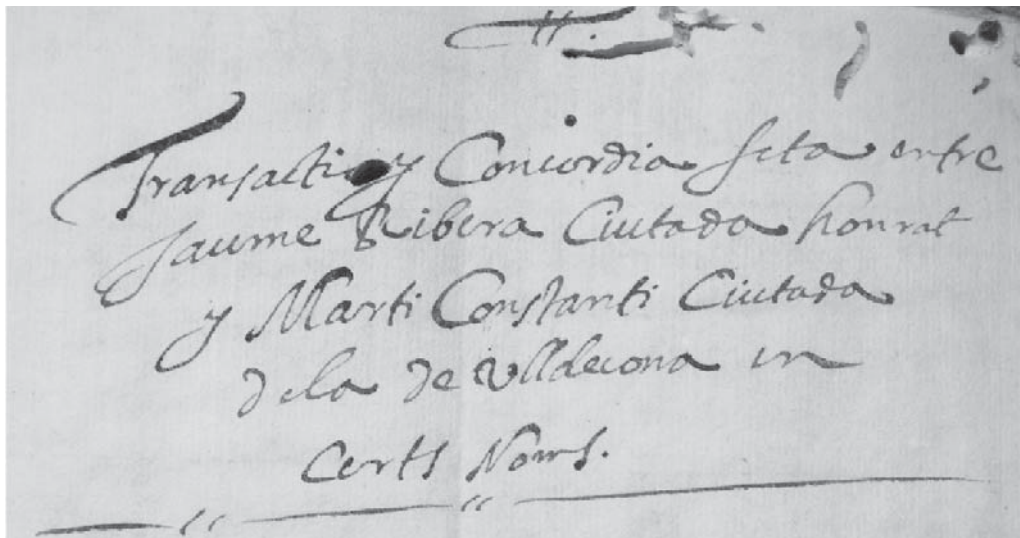 Transactio y Concordia feta entre
Jaume Ribera Ciutada honrat
y Marti Constanti Ciutada
dela de Vlldecona en
Certs Noms.